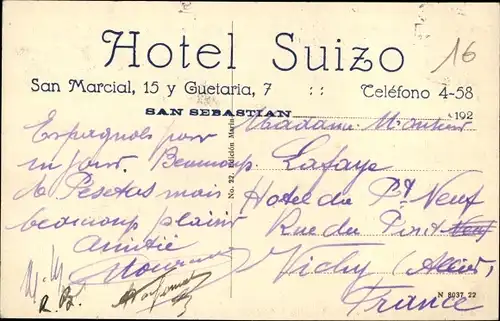 16
Hotel Suizo
San Marcial, 15 y Guetaria, 7 :: Teléfono 4-58
SAN SEBASTIAN 192
Espagnols pour
un jour. Beaucoup
de Pesetas mais
beaucoup plaisir
Amitié
R. B.
No. 27. Edición Marin
Madame. Monsieur
Lafaye
Hotel du Pt Neuf
Rue du Pont Neuf
Vichy (Allier)
France
N 8037 22